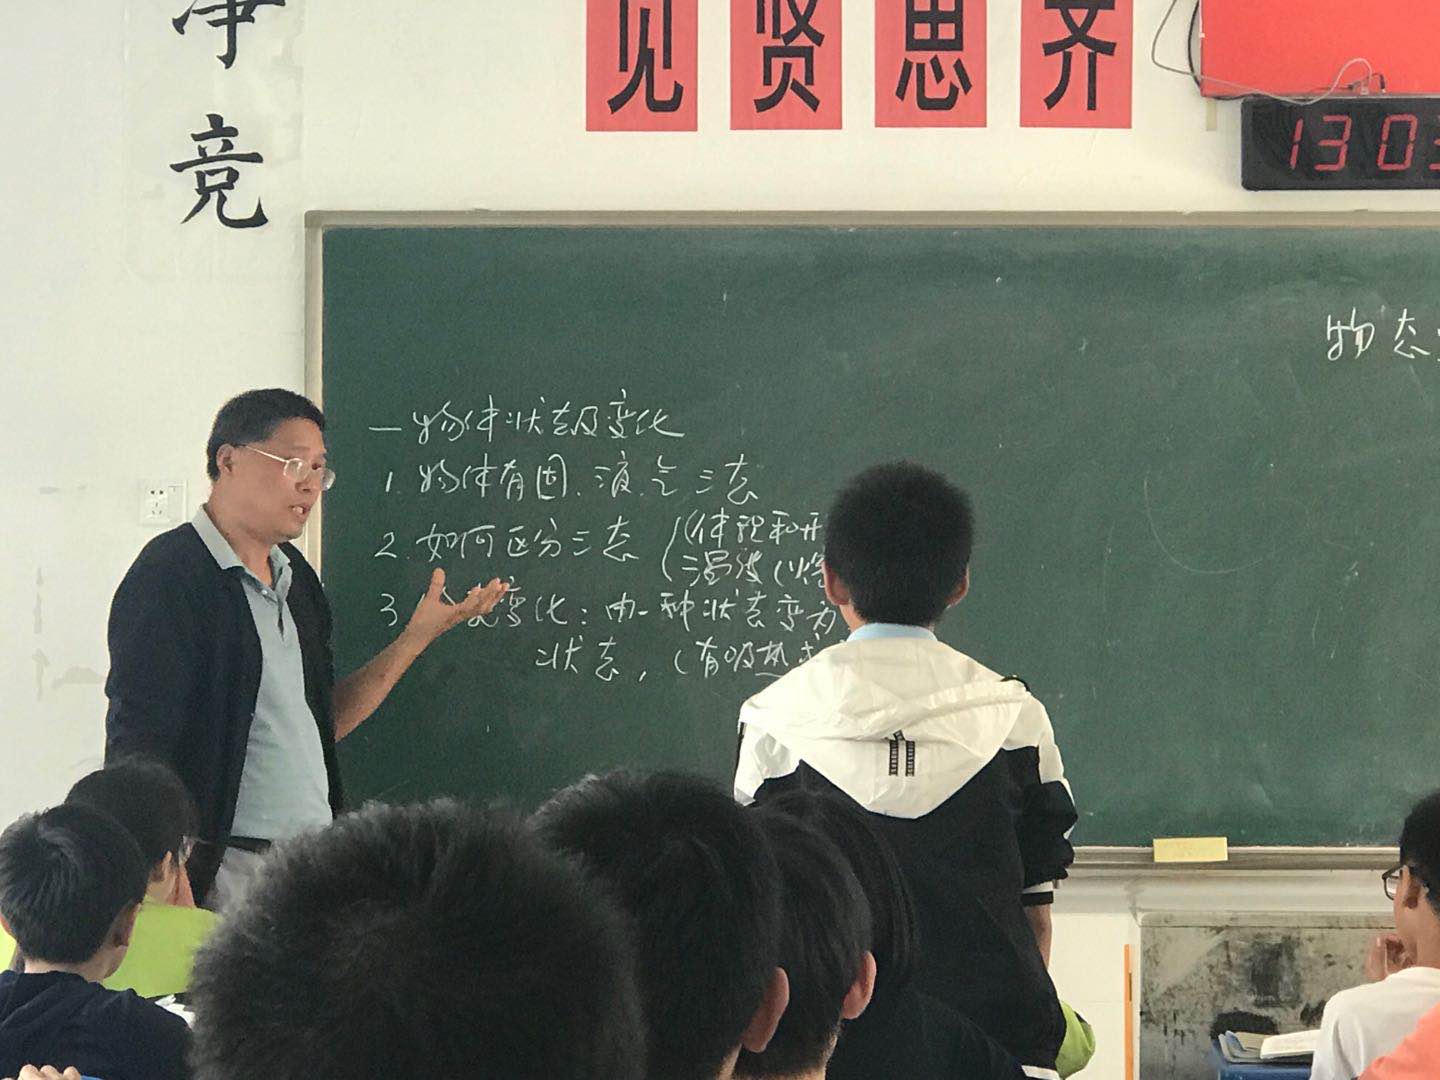 争
竞
见贤思齐
13 03
物态
一 物体状态及变化
1. 物体有固、液、气三态
2. 如何区分三态 (体积和形
温度(
3 变化: 由一种状态变为
状态, (有吸热